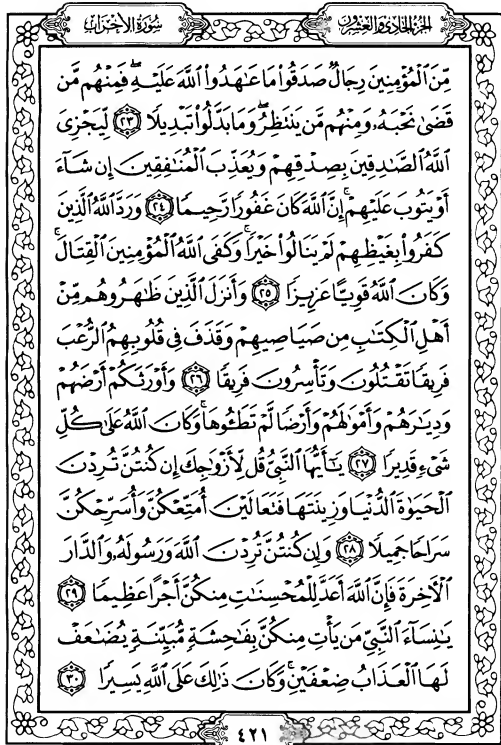 الجزء الحادي والعشرون
سورة الأحزاب
مِّنَ ٱلْمُؤْمِنِينَ رِجَالٌ صَدَقُوا۟ مَا عَٰهَدُوا۟ ٱللَّهَ عَلَيْهِ ۖ فَمِنْهُم مَّن
قَضَىٰ نَحْبَهُۥ وَمِنْهُم مَّن يَنتَظِرُ ۖ وَمَا بَدَّلُوا۟ تَبْدِيلًا ٢٣ لِّيَجْزِىَ
ٱللَّهُ ٱلصَّٰدِقِينَ بِصِدْقِهِمْ وَيُعَذِّبَ ٱلْمُنَٰفِقِينَ إِن شَآءَ
أَوْ يَتُوبَ عَلَيْهِمْ ۚ إِنَّ ٱللَّهَ كَانَ غَفُورًا رَّحِيمًا ٢٤ وَرَدَّ ٱللَّهُ ٱلَّذِينَ
كَفَرُوا۟ بِغَيْظِهِمْ لَمْ يَنَالُوا۟ خَيْرًا ۚ وَكَفَى ٱللَّهُ ٱلْمُؤْمِنِينَ ٱلْقِتَالَ ۚ
وَكَانَ ٱللَّهُ قَوِيًّا عَزِيزًا ٢٥ وَأَنزَلَ ٱلَّذِينَ ظَٰهَرُوهُم مِّنْ
أَهْلِ ٱلْكِتَٰبِ مِن صَيَاصِيهِمْ وَقَذَفَ فِى قُلُوبِهِمُ ٱلرُّعْبَ
فَرِيقًا تَقْتُلُونَ وَتَأْسِرُونَ فَرِيقًا ٢٦ وَأَوْرَثَكُمْ أَرْضَهُمْ
وَدِيَٰرَهُمْ وَأَمْوَٰلَهُمْ وَأَرْضًا لَّمْ تَطَـُٔوهَا ۚ وَكَانَ ٱللَّهُ عَلَىٰ كُلِّ
شَىْءٍ قَدِيرًا ٢٧ يَٰٓأَيُّهَا ٱلنَّبِىُّ قُل لِّأَزْوَٰجِكَ إِن كُنتُنَّ تُرِدْنَ
ٱلْحَيَوٰةَ ٱلدُّنْيَا وَزِينَتَهَا فَتَعَالَيْنَ أُمَتِّعْكُنَّ وَأُسَرِّحْكُنَّ
سَرَاحًا جَمِيلًا ٢٨ وَإِن كُنتُنَّ تُرِدْنَ ٱللَّهَ وَرَسُولَهُۥ وَٱلدَّارَ
ٱلْـَٔاخِرَةَ فَإِنَّ ٱللَّهَ أَعَدَّ لِلْمُحْسِنَٰتِ مِنكُنَّ أَجْرًا عَظِيمًا ٢٩
يَٰنِسَآءَ ٱلنَّبِىِّ مَن يَأْتِ مِنكُنَّ بِفَٰحِشَةٍ مُّبَيِّنَةٍ يُضَٰعَفْ
لَهَا ٱلْعَذَابُ ضِعْفَيْنِ ۚ وَكَانَ ذَٰلِكَ عَلَى ٱللَّهِ يَسِيرًا ٣٠
٤٢١